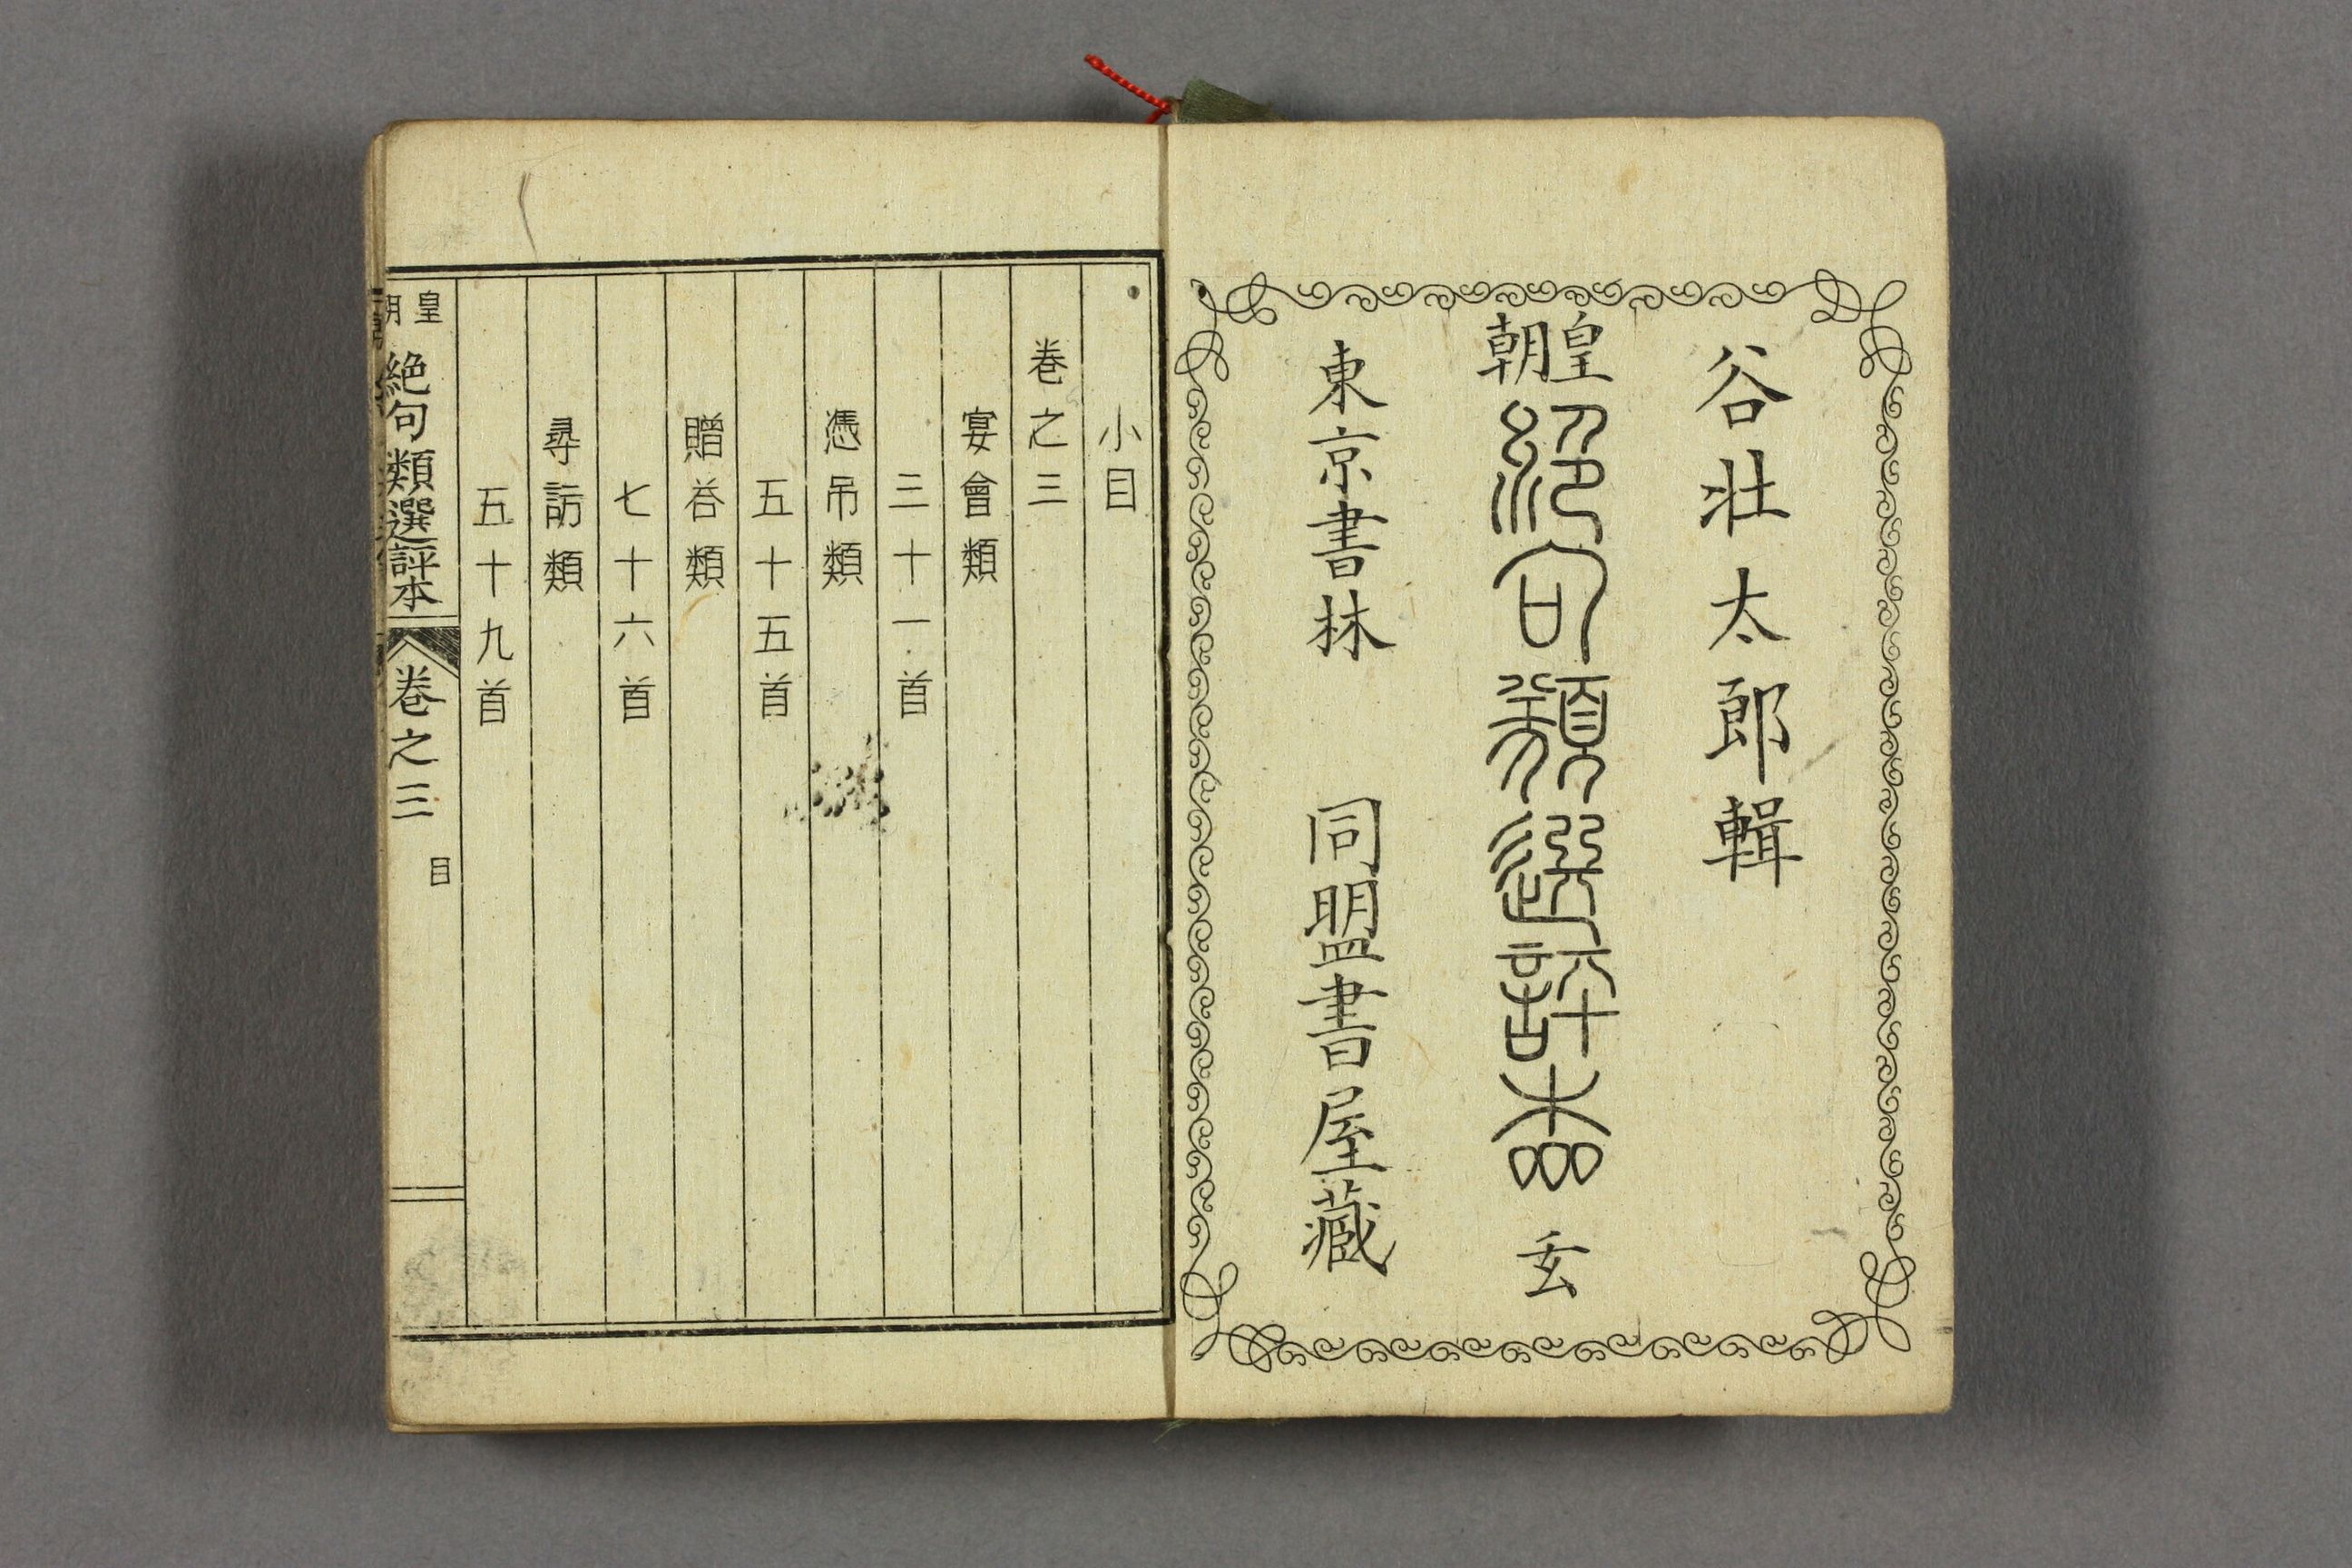 谷壮太郎輯
皇朝絶句類選評本 玄
東京書林 同盟書屋藏
小目
巻之三
宴會類
三十一首
憑吊類
五十五首
贈荅類
七十六首
尋訪類
五十九首
皇朝絶句類選評本 巻之三 目